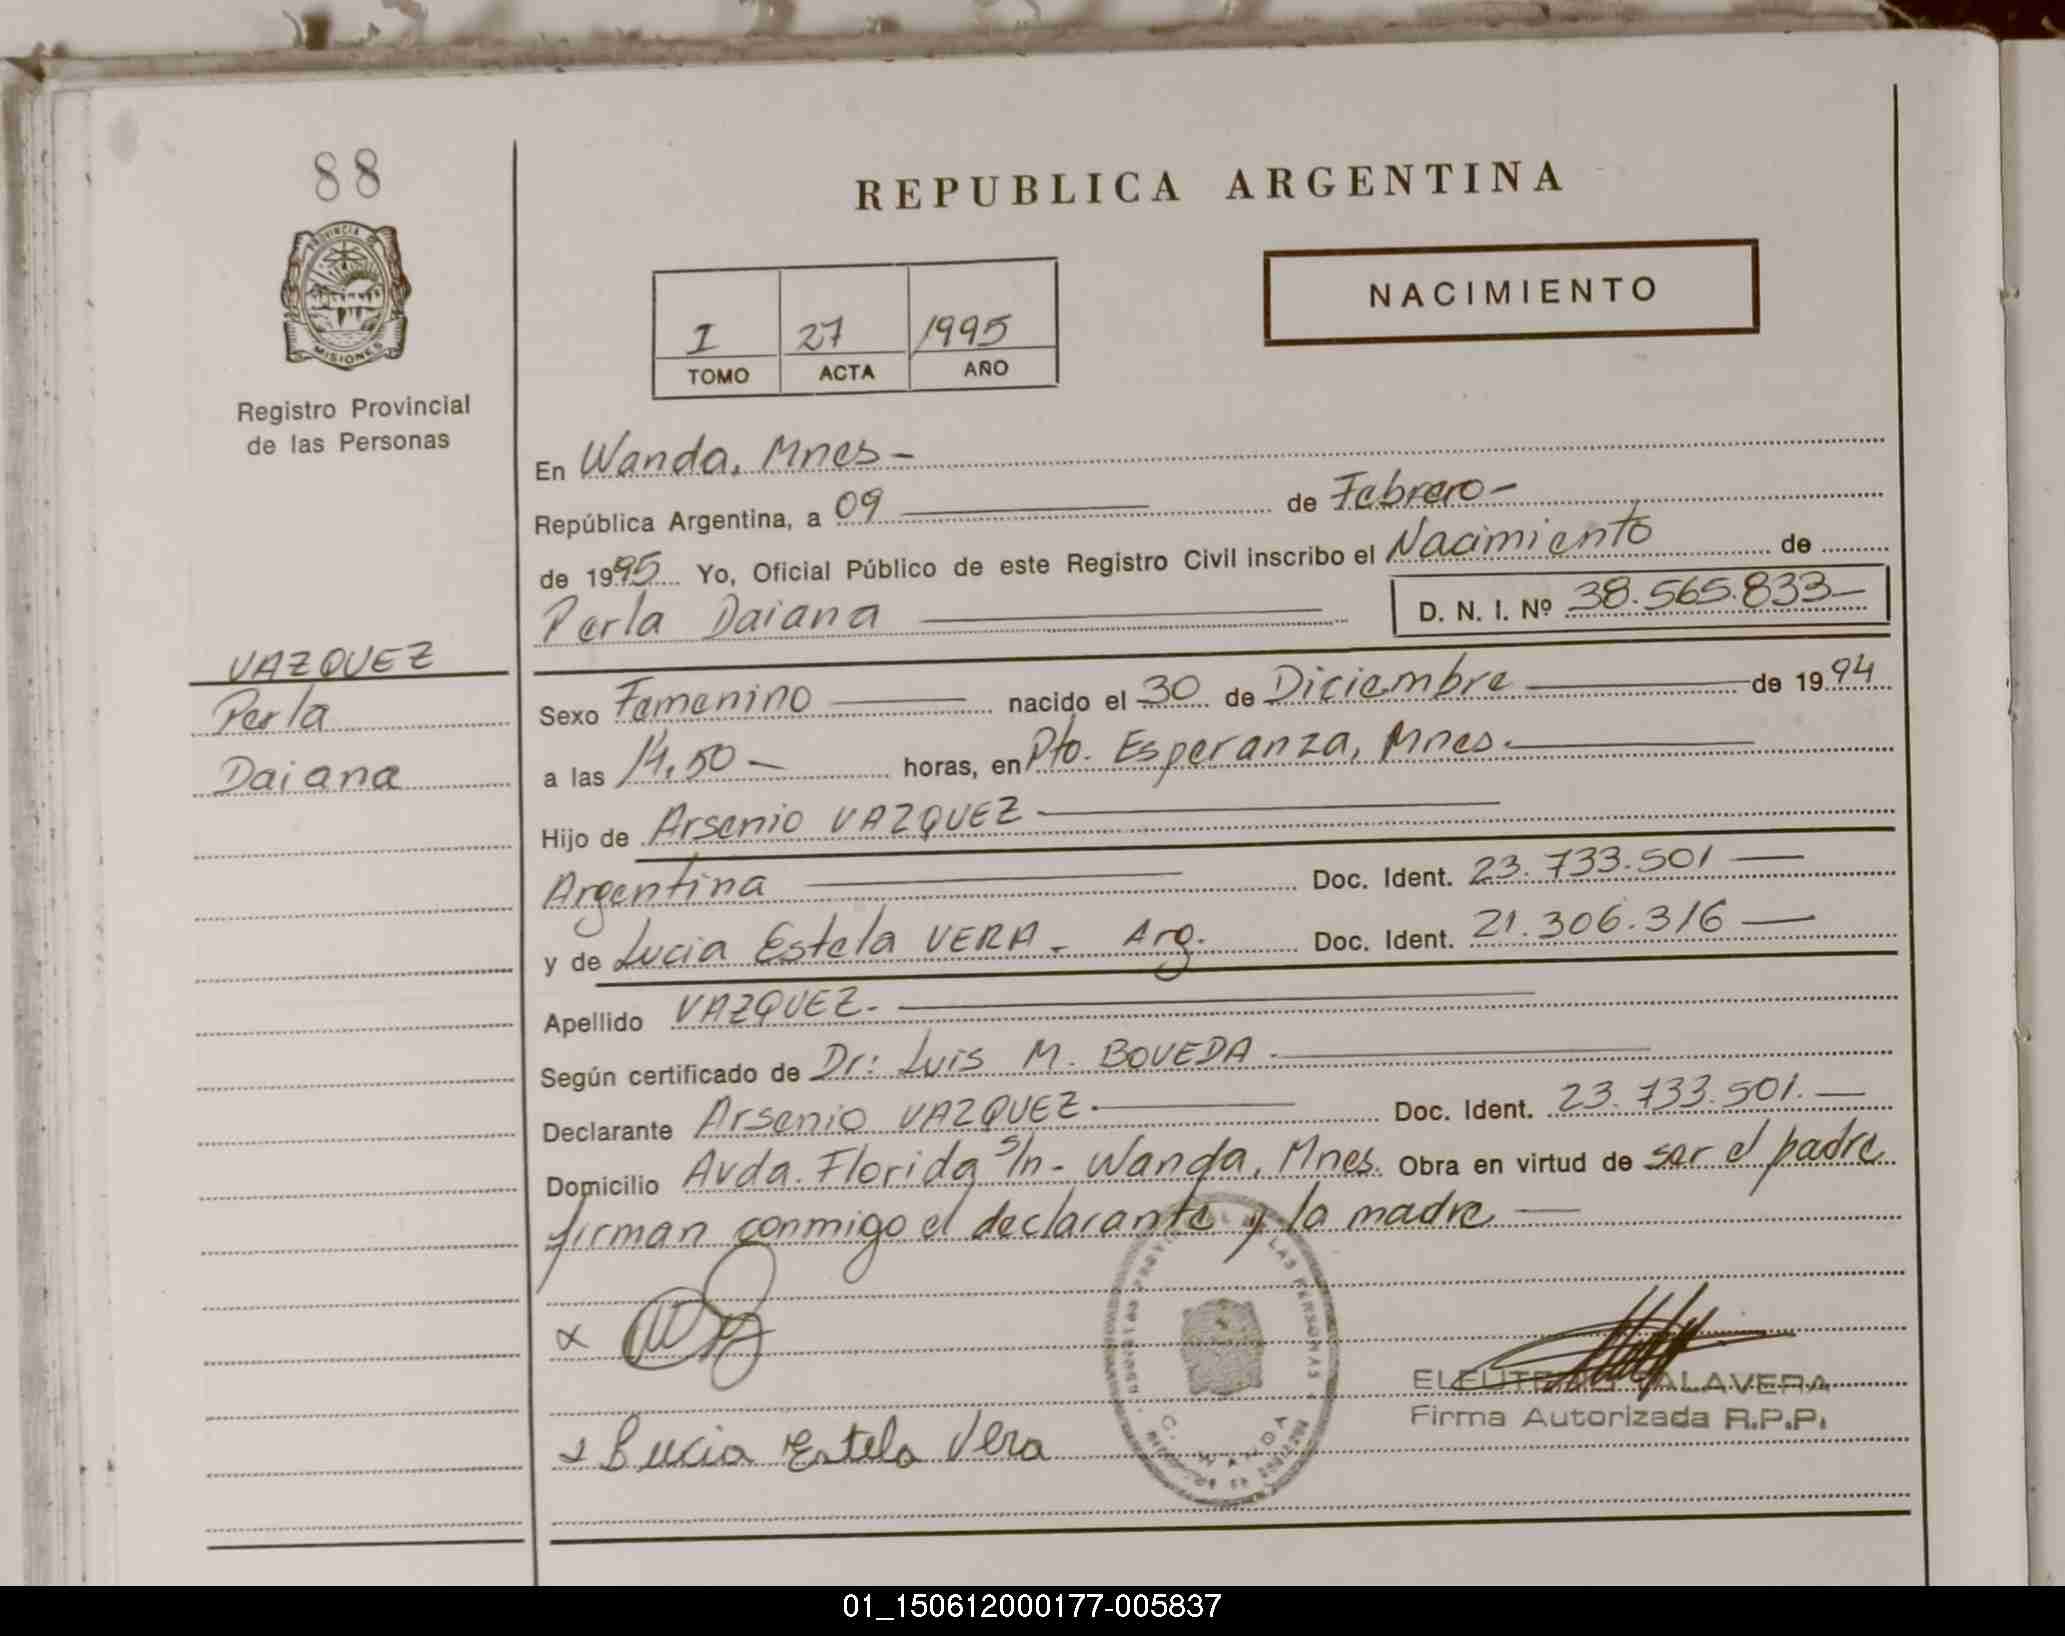 88
REPUBLICA ARGENTINA
PROVINCIA DE
MISIONES
NACIMIENTO
I 27 1995
TOMO ACTA AÑO
Registro Provincial
de las Personas
En Wanda, Mnes -
República Argentina, a 09 de Febrero -
de 1995 Yo, Oficial Público de este Registro Civil inscribo el Nacimiento de
Perla Daiana D. N. I. Nº 38.565.833 -
VAZQUEZ
Perla
Daiana
Sexo Femenino nacido el 30 de Diciembre de 1994
a las 14.50 - horas, en Pto. Esperanza, Mnes.
Hijo de Arsenio VAZQUEZ
Argentina Doc. Ident. 23.733.501
y de Lucia Estela VERA - Arg. Doc. Ident. 21.306.316
Apellido VAZQUEZ.-
Según certificado de Dr: Luis M. BOVEDA.
Declarante Arsenio VAZQUEZ. Doc. Ident. 23.733.501.
Domicilio Avda. Florida s/n - Wanda, Mnes. Obra en virtud de ser el padre
firman conmigo el declarante y la madre
ELEUTERIO TALAVERA
Firma Autorizada R.P.P.
Lucia Estela Vera
LAS PERSONAS
WANDA
01_150612000177-005837